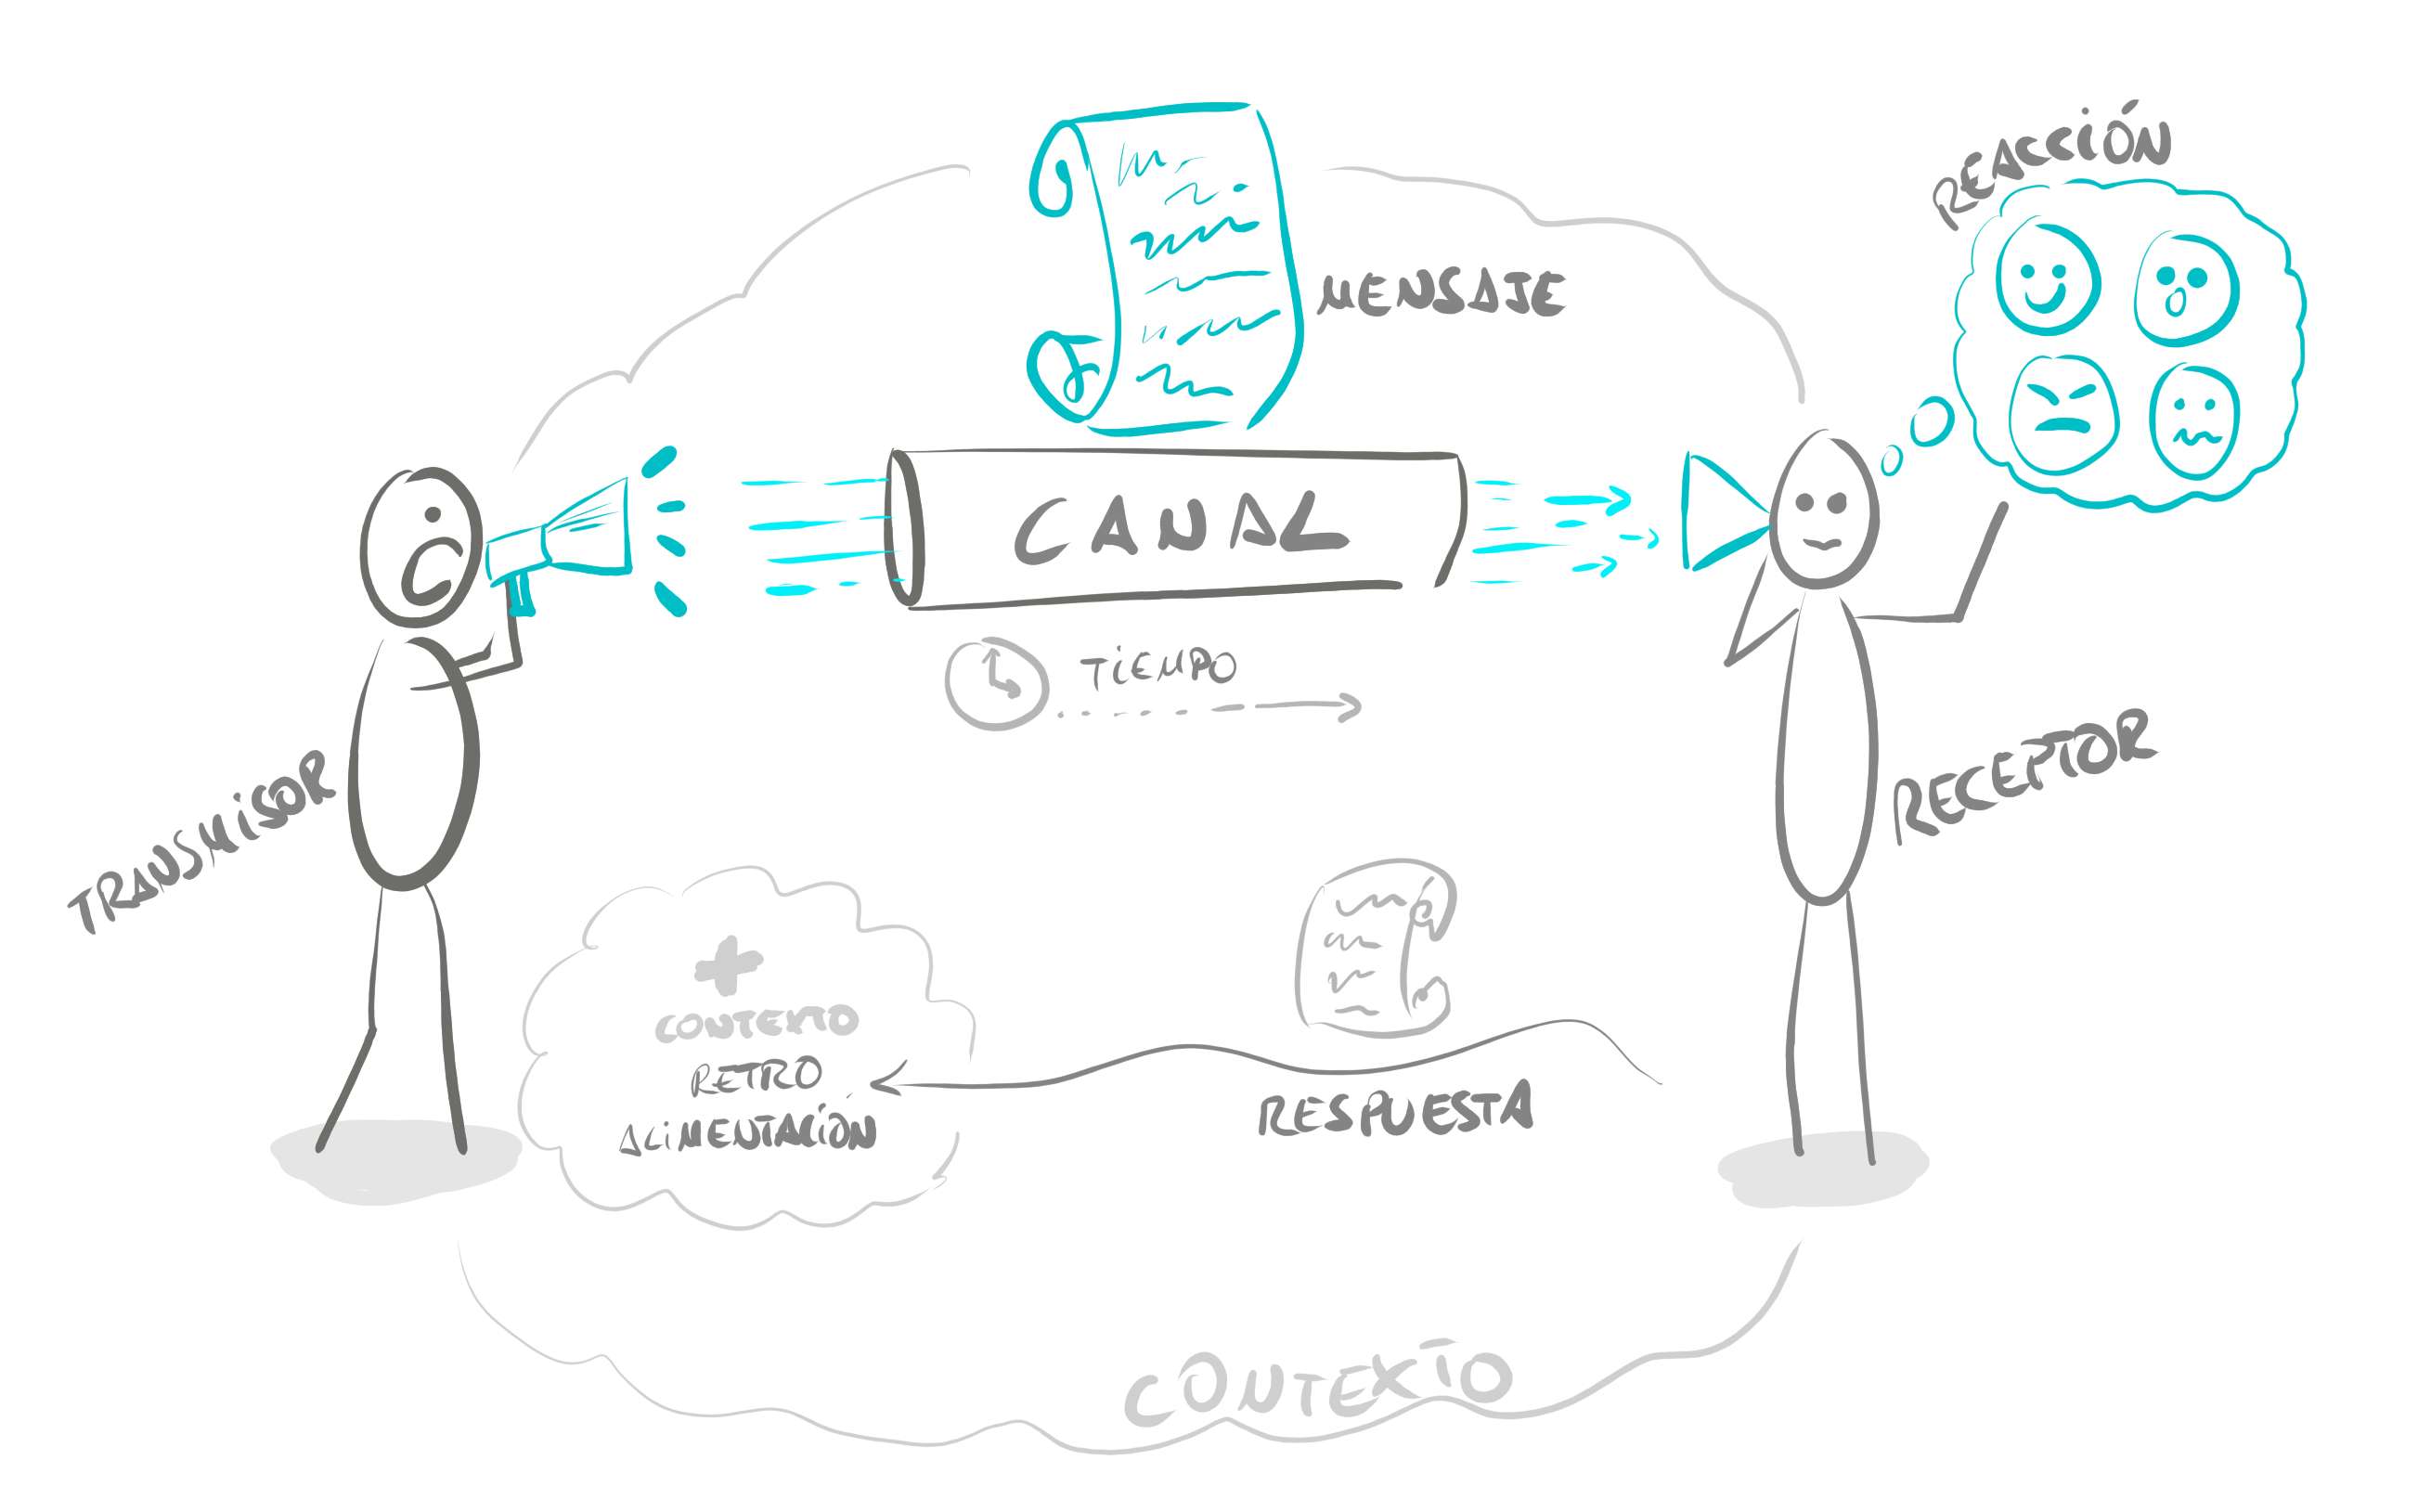 REACCIÓN
MENSAJE
CANAL
TIEMPO
TRANSMISOR
RECEPTOR
+
CONTEXTO
RETRO
ALIMENTACIÓN
RESPUESTA
CONTEXTO